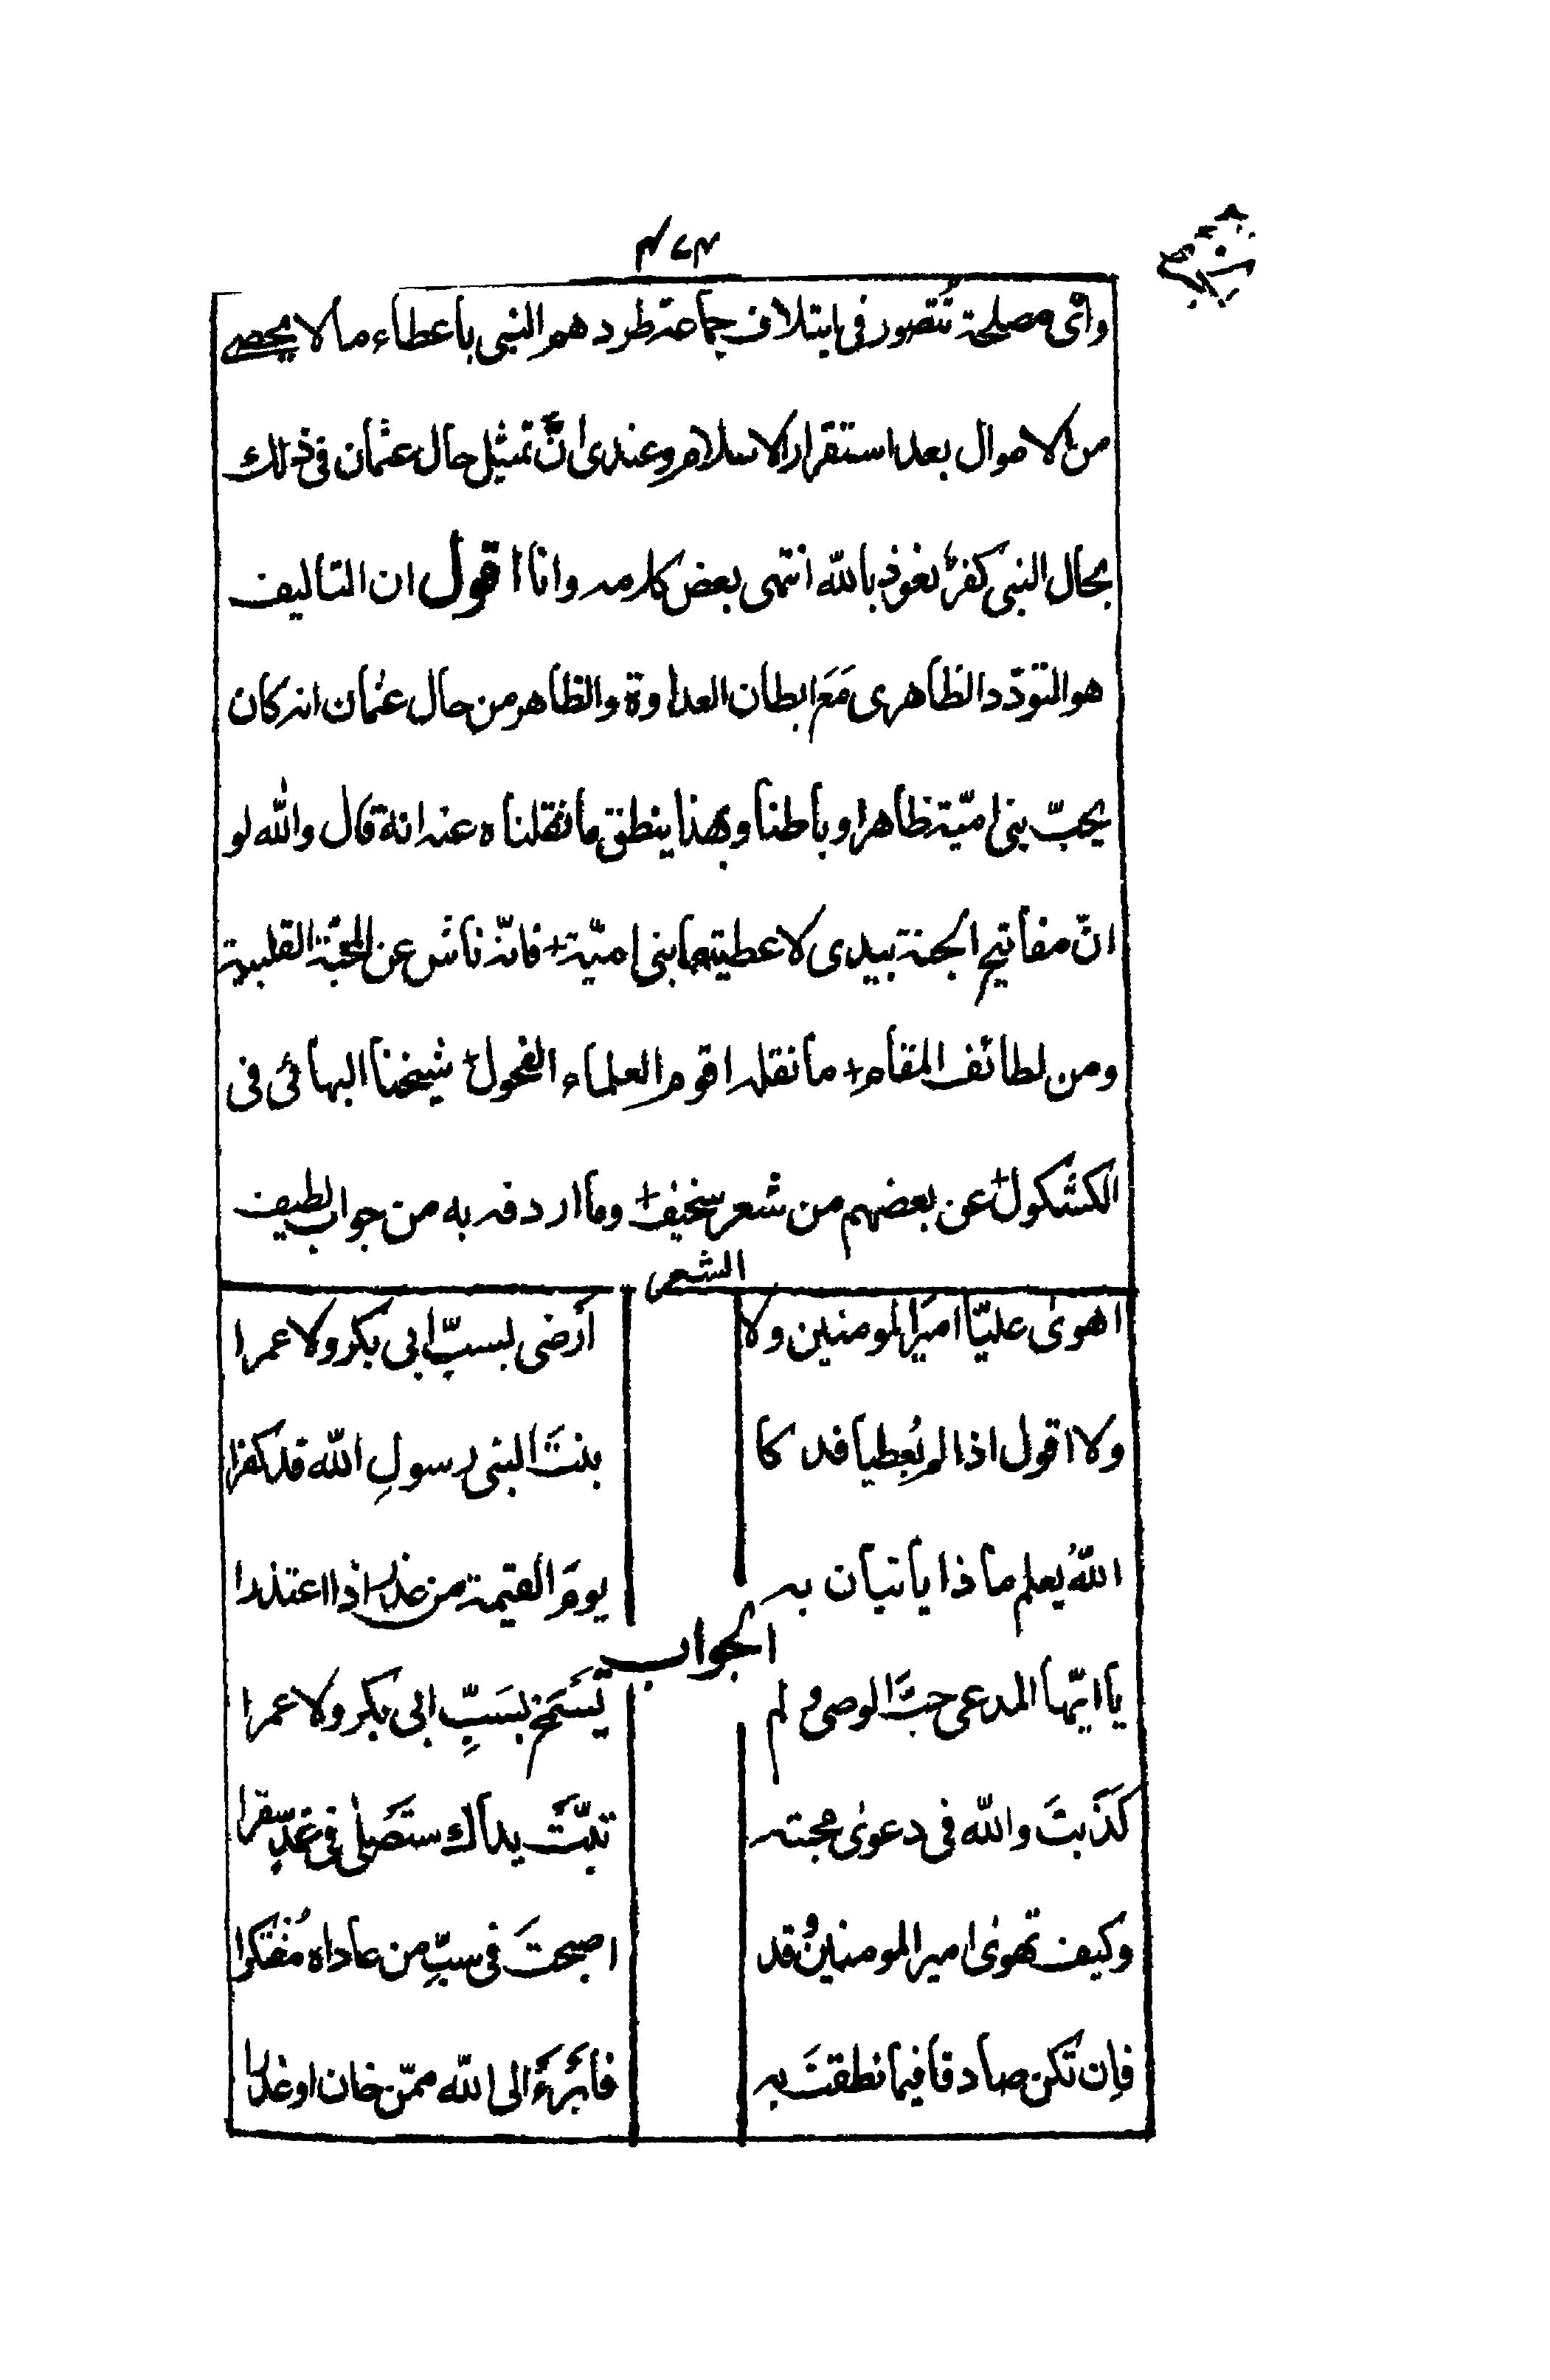 ۴۷۴
وای مصلحة تتصور فی ایتلاف جماعة طردهم النبی باعطاء ما لا یحصی
من الاموال بعد استقرار الاسلام وعندی انّ تمثیل حال عثمان فی ذلك
بحال النبی کفر نعوذ بالله انتهی بعض کلامه وانا اقول ان التالیف
هو التودّد الظاهری مَعَ ابطان العداوة والظاهر من حال عثمان انه کان
یحبّ بنی امیّة ظاهرا وباطنا وبهذا ینطق ما نقلناه عنه انه قال والله لو
انّ مفاتیح الجنة بیدی لاعطیتها بنی امیّة + فانّه ناش عن المحبّة القلبیة
ومن لطائف المقام + ما نقله اقوم العلماء الفحول + شیخنا البهائی فی
الکشکول + عن بعضهم من شعر سخیف + وما اردفه به من جواب لطیف
الشعر
اهوی علیّا امیرَ المومنین ولا ارضی بسبّ ابی بکر ولا عمرا
ولا اقول اذا لم یُعطیا فدکا بنتَ النبی رسولِ الله قد کفرا
اللهُ یعلم ماذا یاتیان به یومَ القیمة من عذر اذا اعتذرا
الجواب
یا ایّها المدعی حبَّ الوصی ولم تَسمَح بسَبِّ ابی بکر ولا عمرا
کَذَبتَ والله فی دعوی محبته تبّتَ یداك ستَصلی فی غدٍ سقرا
وکیف تهوی امیر المومنین وقد اصبحتَ فی سبِّ من عاداه مُفتکرا
فاِن تکن صادقا فیما نطقتَ به فابَرءَ الی الله ممّن خان او غدرا